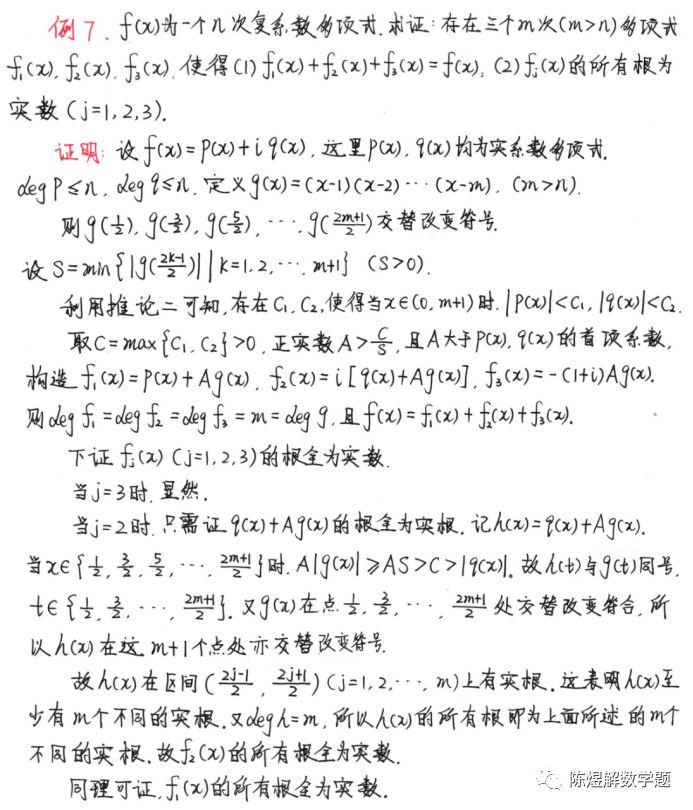 例7. f(x)为一个n次复系数多项式. 求证: 存在三个m次(m>n)多项式
f₁(x), f₂(x), f₃(x), 使得(1) f₁(x)+f₂(x)+f₃(x)=f(x); (2) fⱼ(x)的所有根为
实数 (j=1,2,3).
证明: 设f(x)=p(x)+iq(x), 这里p(x), q(x)均为实系数多项式.
deg p≤n, deg q≤n, 定义g(x)=(x-1)(x-2)···(x-m), (m>n).
则g(1/2), g(3/2), g(5/2), ···, g((2m+1)/2)交替改变符号.
设S=min{|g((2k-1)/2)| | k=1,2,···,m+1} (S>0).
利用推论二可知, 存在C₁, C₂, 使得当x∈(0, m+1)时, |p(x)|<C₁, |q(x)|<C₂.
取C=max{C₁, C₂}>0, 正实数A>C/S, 且A大于p(x), q(x)的首项系数,
构造f₁(x)=p(x)+Ag(x), f₂(x)=i[q(x)+Ag(x)], f₃(x)=-(1+i)Ag(x).
则deg f₁=deg f₂=deg f₃=m=deg g, 且f(x)=f₁(x)+f₂(x)+f₃(x).
下证fⱼ(x) (j=1,2,3)的根全为实数.
当j=3时, 显然.
当j=2时, 只需证q(x)+Ag(x)的根全为实根. 记h(x)=q(x)+Ag(x).
当x∈{1/2, 3/2, 5/2, ···, (2m+1)/2}时, A|g(x)|≥AS>C>|q(x)|. 故h(t)与g(t)同号,
t∈{1/2, 3/2, ···, (2m+1)/2}. 又g(x)在点1/2, 3/2, ···, (2m+1)/2处交替改变符合, 所
以h(x)在这m+1个点处亦交替改变符号.
故h(x)在区间((2j-1)/2, (2j+1)/2) (j=1,2,···,m)上有实根. 这表明h(x)至
少有m个不同的实根. 又deg h=m, 所以h(x)的所有根即为上面所述的m个
不同的实根. 故f₂(x)的所有根全为实数.
同理可证, f₁(x)的所有根全为实数.
陈煜解数学题